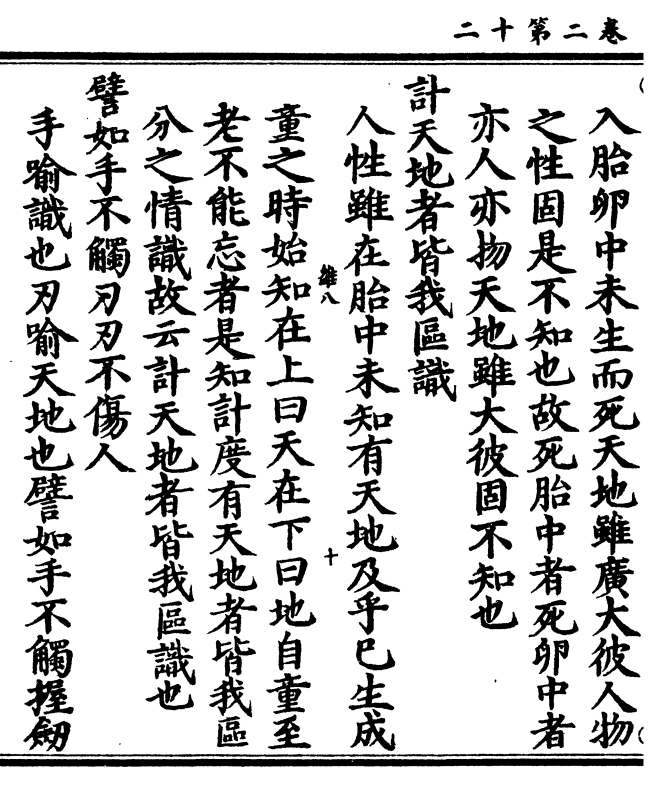 卷二第十二
入胎卵中未生而死天地雖廣大彼人物
之性固是不知也故死胎中者死卵中者
亦人亦物天地雖大彼固不知也
計天地者皆我區識
人性雖在胎中未知有天地及乎巳生成
雏八
十
童之時始知在上曰天在下曰地自童至
老不能忘者是知計度有天地者皆我區
分之情識故云計天地者皆我區識也
譬如手不觸刃刃不傷人
手喻識也刃喻天地也譬如手不觸握劒